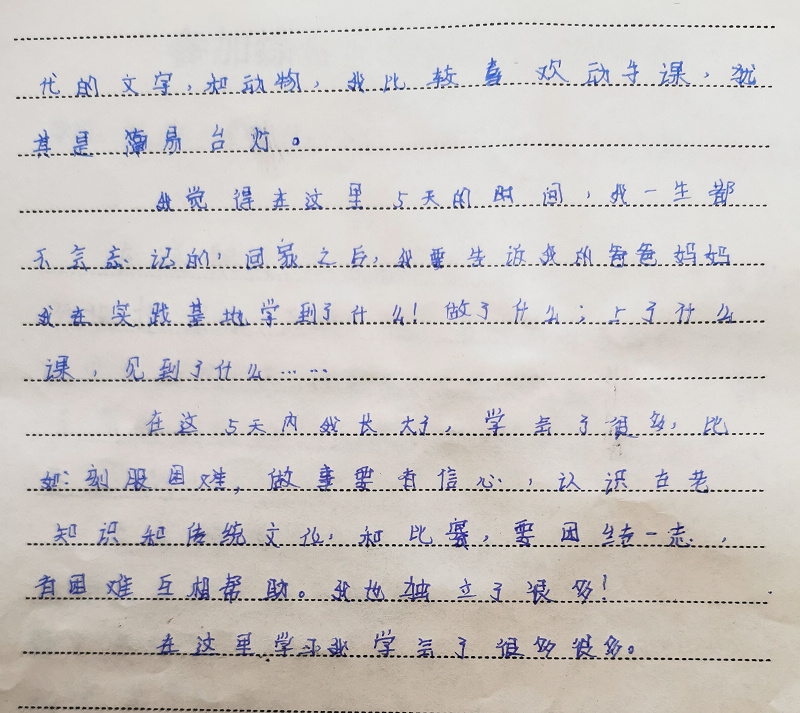 代的文字,和动物,我比较喜欢动手课,犹
其是简易台灯。
我觉得在这里5天的时间,我一生都
不会忘记的,回家之后,我要告诉我的爸爸妈妈
我在实践基地学到了什么!做了什么;上了什么
课,见到了什么……
在这5天内我长大了,学会了很多,比
如:刻服困难,做事要有信心,认识古老
知识和传统文化,和比赛,要团结一志,
有困难互相帮助。我也独立了很多!
在这里学习我学会了很多很多。